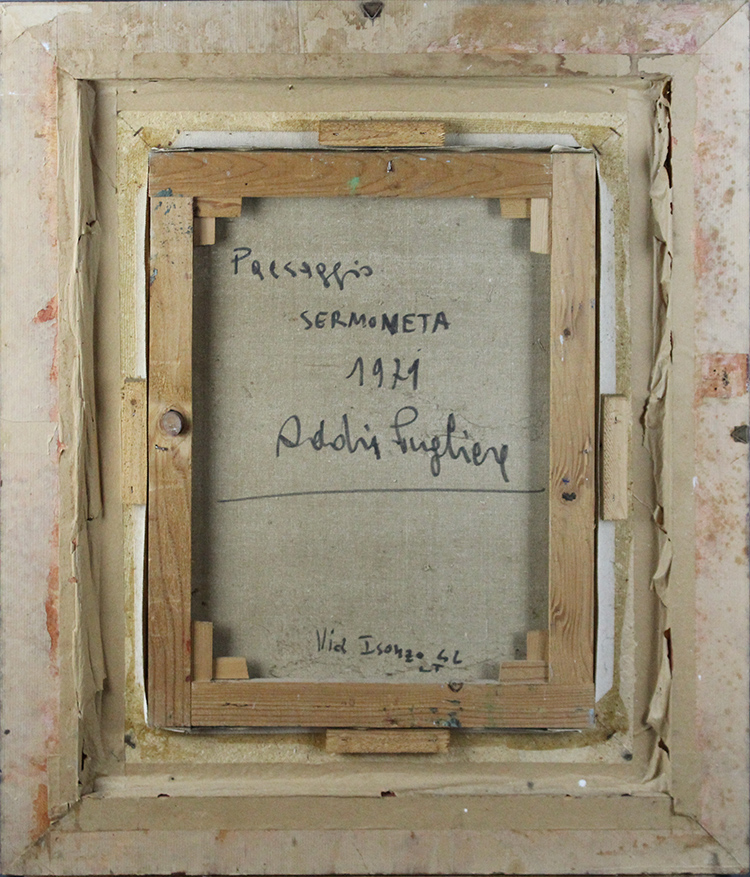 Paesaggio
SERMONETA
1971
Addis Pugliese
Via Isonzo
LT